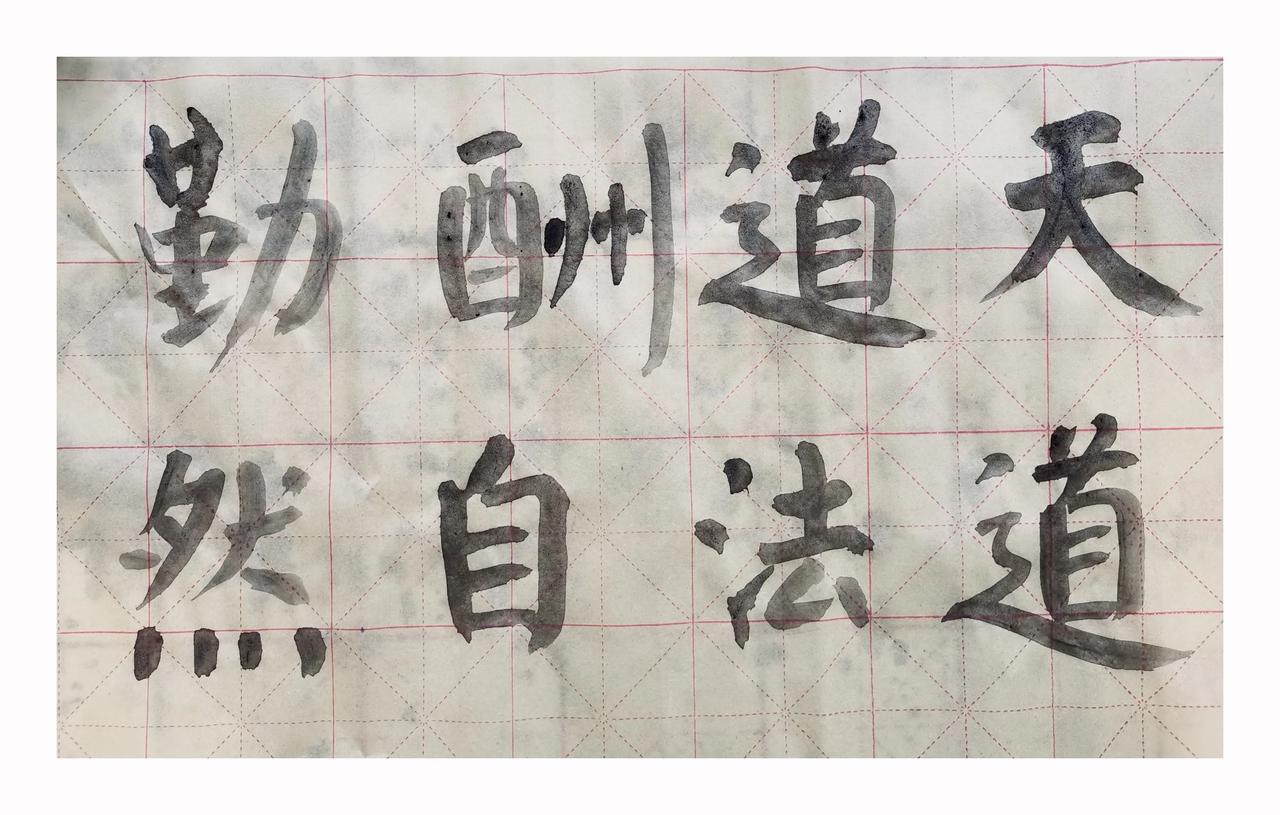 天道酬勤
道法自然